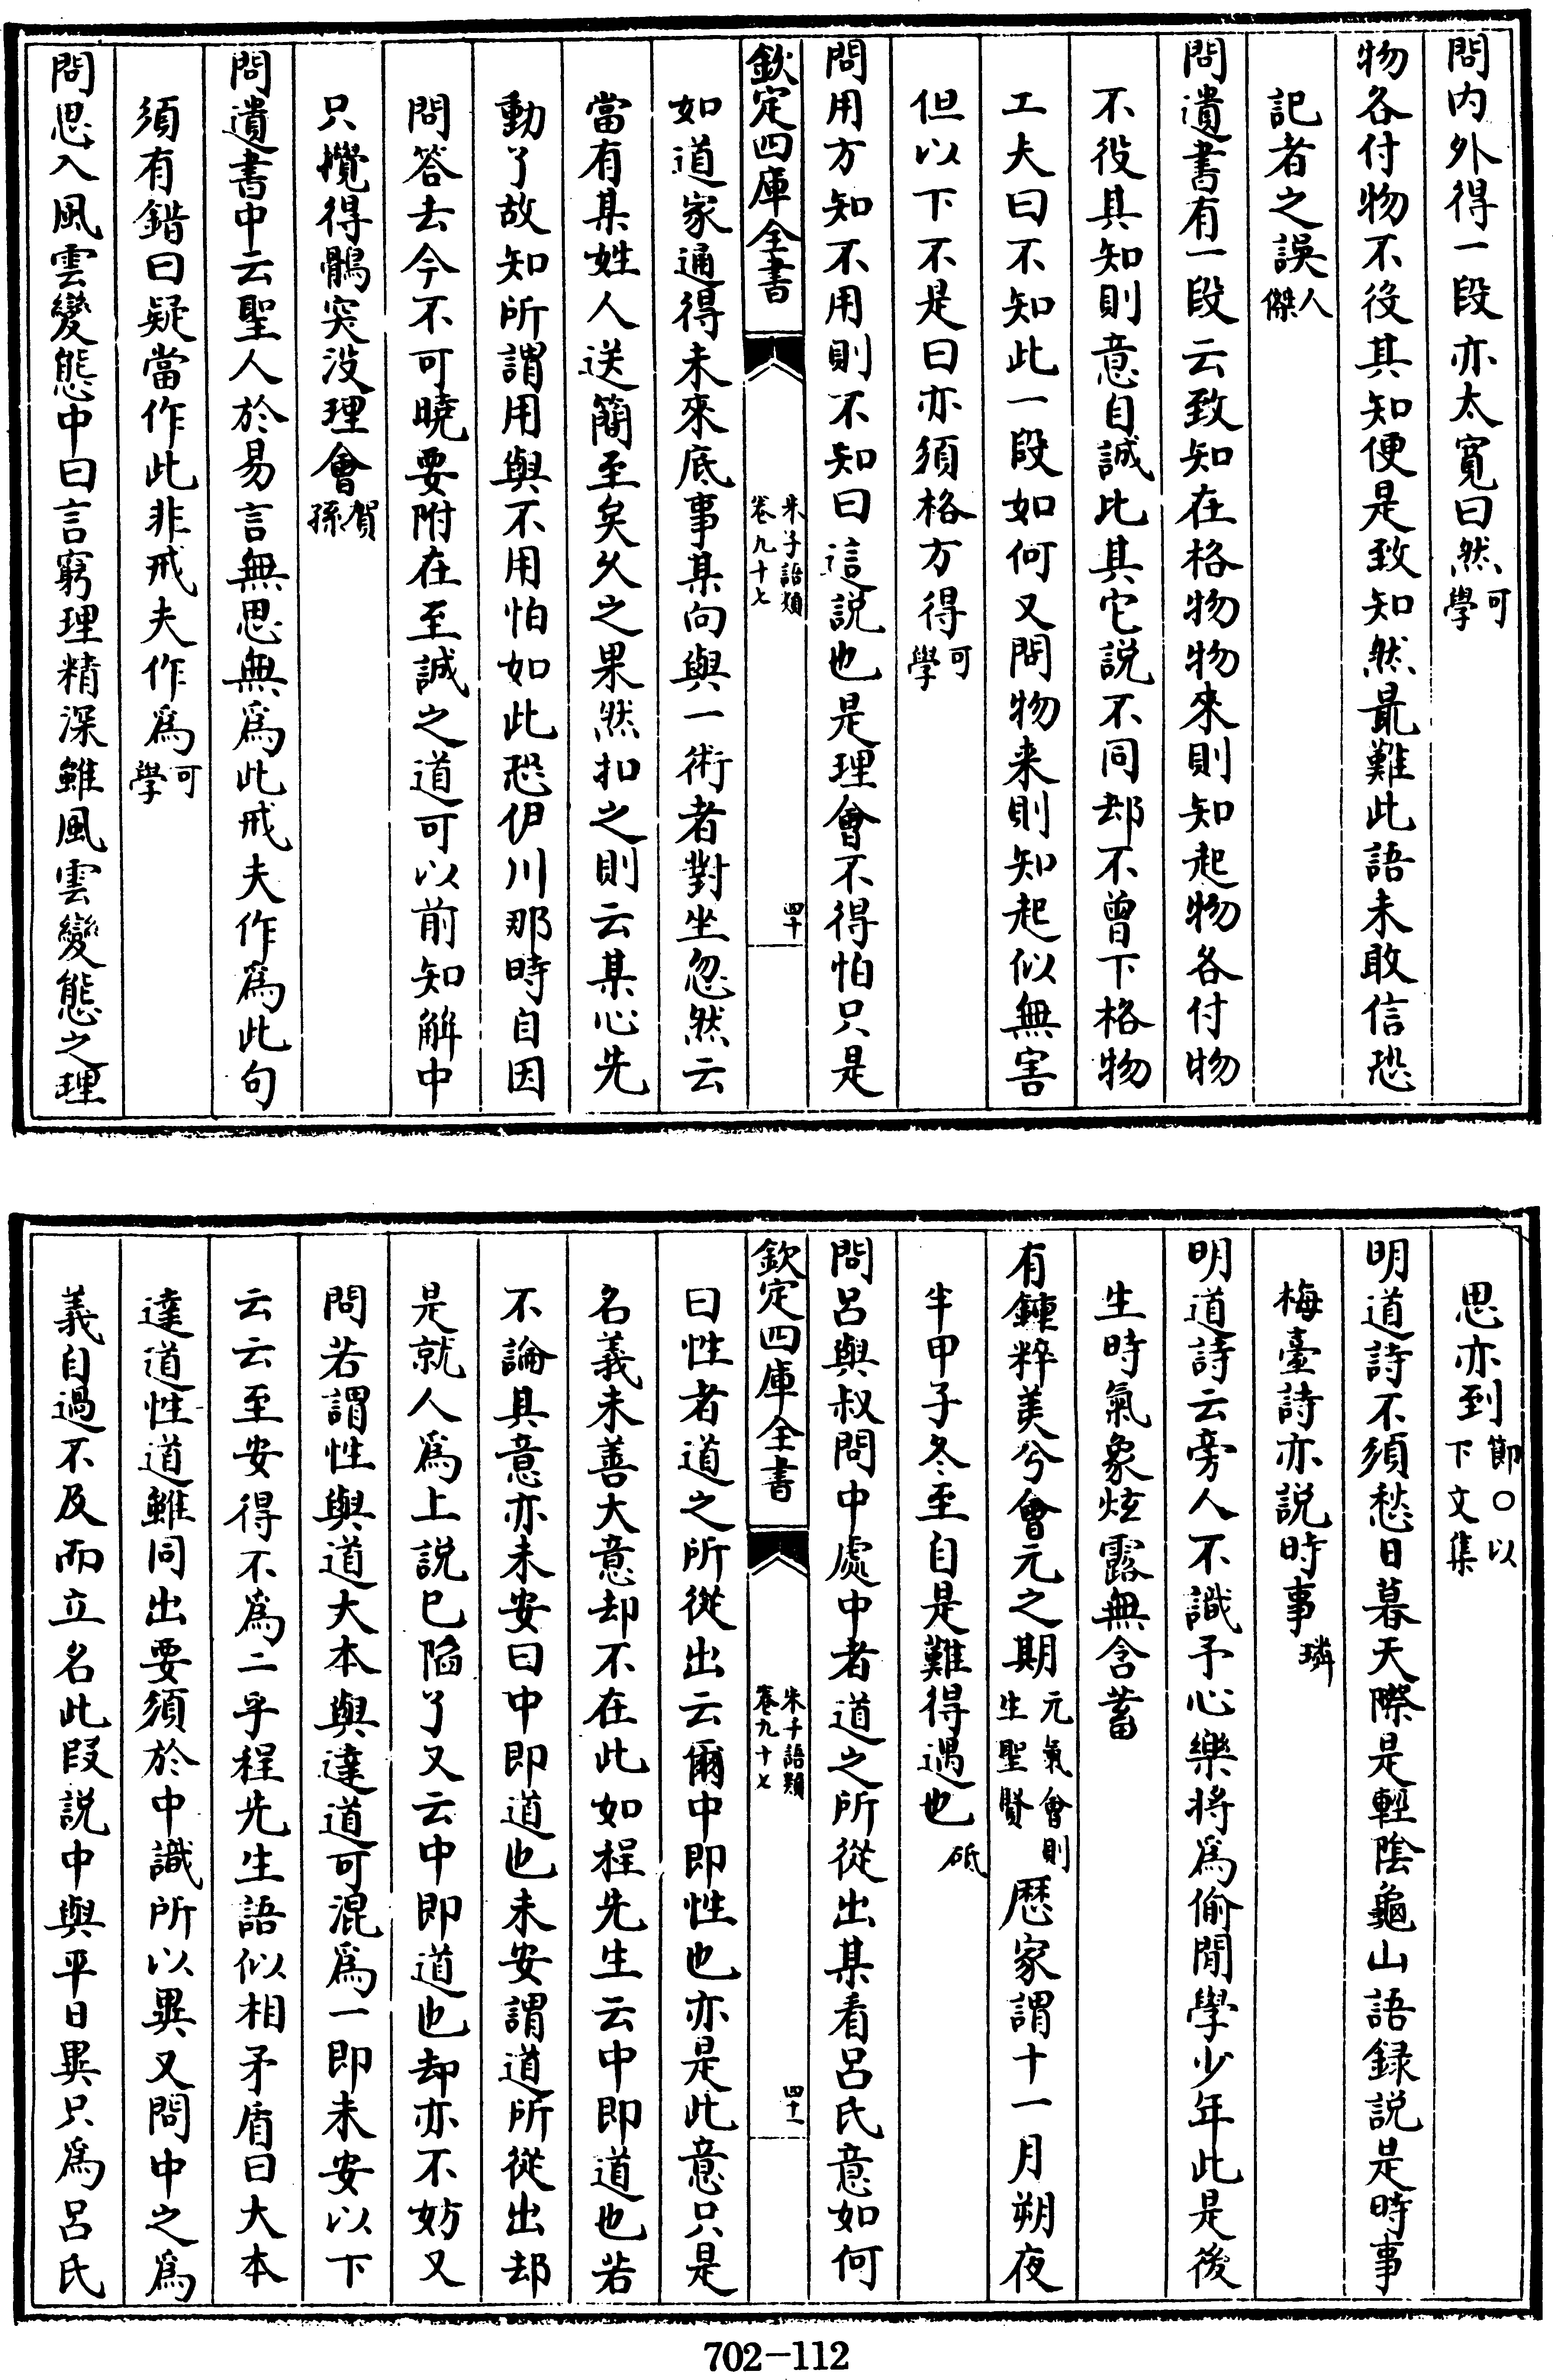 問内外得一段亦太寬曰然可學
物各付物不役其知便是致知然最難此語未敢信恐
記者之誤人傑
問遺書有一段云致知在格物物來則知起物各付物
不役其知則意自誠比其它説不同却不曾下格物
工夫曰不知此一段如何又問物来則知起似無害
但以下不是曰亦須格方得可學
問用方知不用則不知曰這説也是理會不得怕只是
欽定四庫全書
朱子語類
卷九十七
四十
如道家通得未來底事某向與一術者對坐忽然云
當有某姓人送簡至矣久之果然扣之則云某心先
動了故知所謂用與不用怕如此恐伊川那時自因
問答去今不可曉要附在至誠之道可以前知解中
只攪得鶻突没理會賀孫
問遺書中云聖人於易言無思無爲此戒夫作爲此句
須有錯曰疑當作此非戒夫作爲可學
問思入風雲變態中曰言窮理精深雖風雲變態之理
思亦到節○以下文集
明道詩不須愁日暮天際是輕陰龜山語録説是時事
梅臺詩亦説時事璘
明道詩云旁人不識予心樂將爲偷閒學少年此是後
生時氣象炫露無含蓄
有鍾粹美兮會元之期元氣會則生聖賢歴家謂十一月朔夜
半甲子冬至自是難得遇也砥
問呂與叔問中處中者道之所從出某看呂氏意如何
欽定四庫全書
朱子語類
卷九十七
四十一
曰性者道之所從出云爾中即性也亦是此意只是
名義未善大意却不在此如程先生云中即道也若
不論其意亦未安曰中即道也未安謂道所從出却
是就人爲上説已陷了又云中即道也却亦不妨又
問若謂性與道大本與達道可混爲一即未安以下
云云至安得不爲二乎程先生語似相矛盾曰大本
達道性道雖同出要須於中識所以異又問中之爲
義自過不及而立名此叚説中與平日異只爲呂氏
702-112